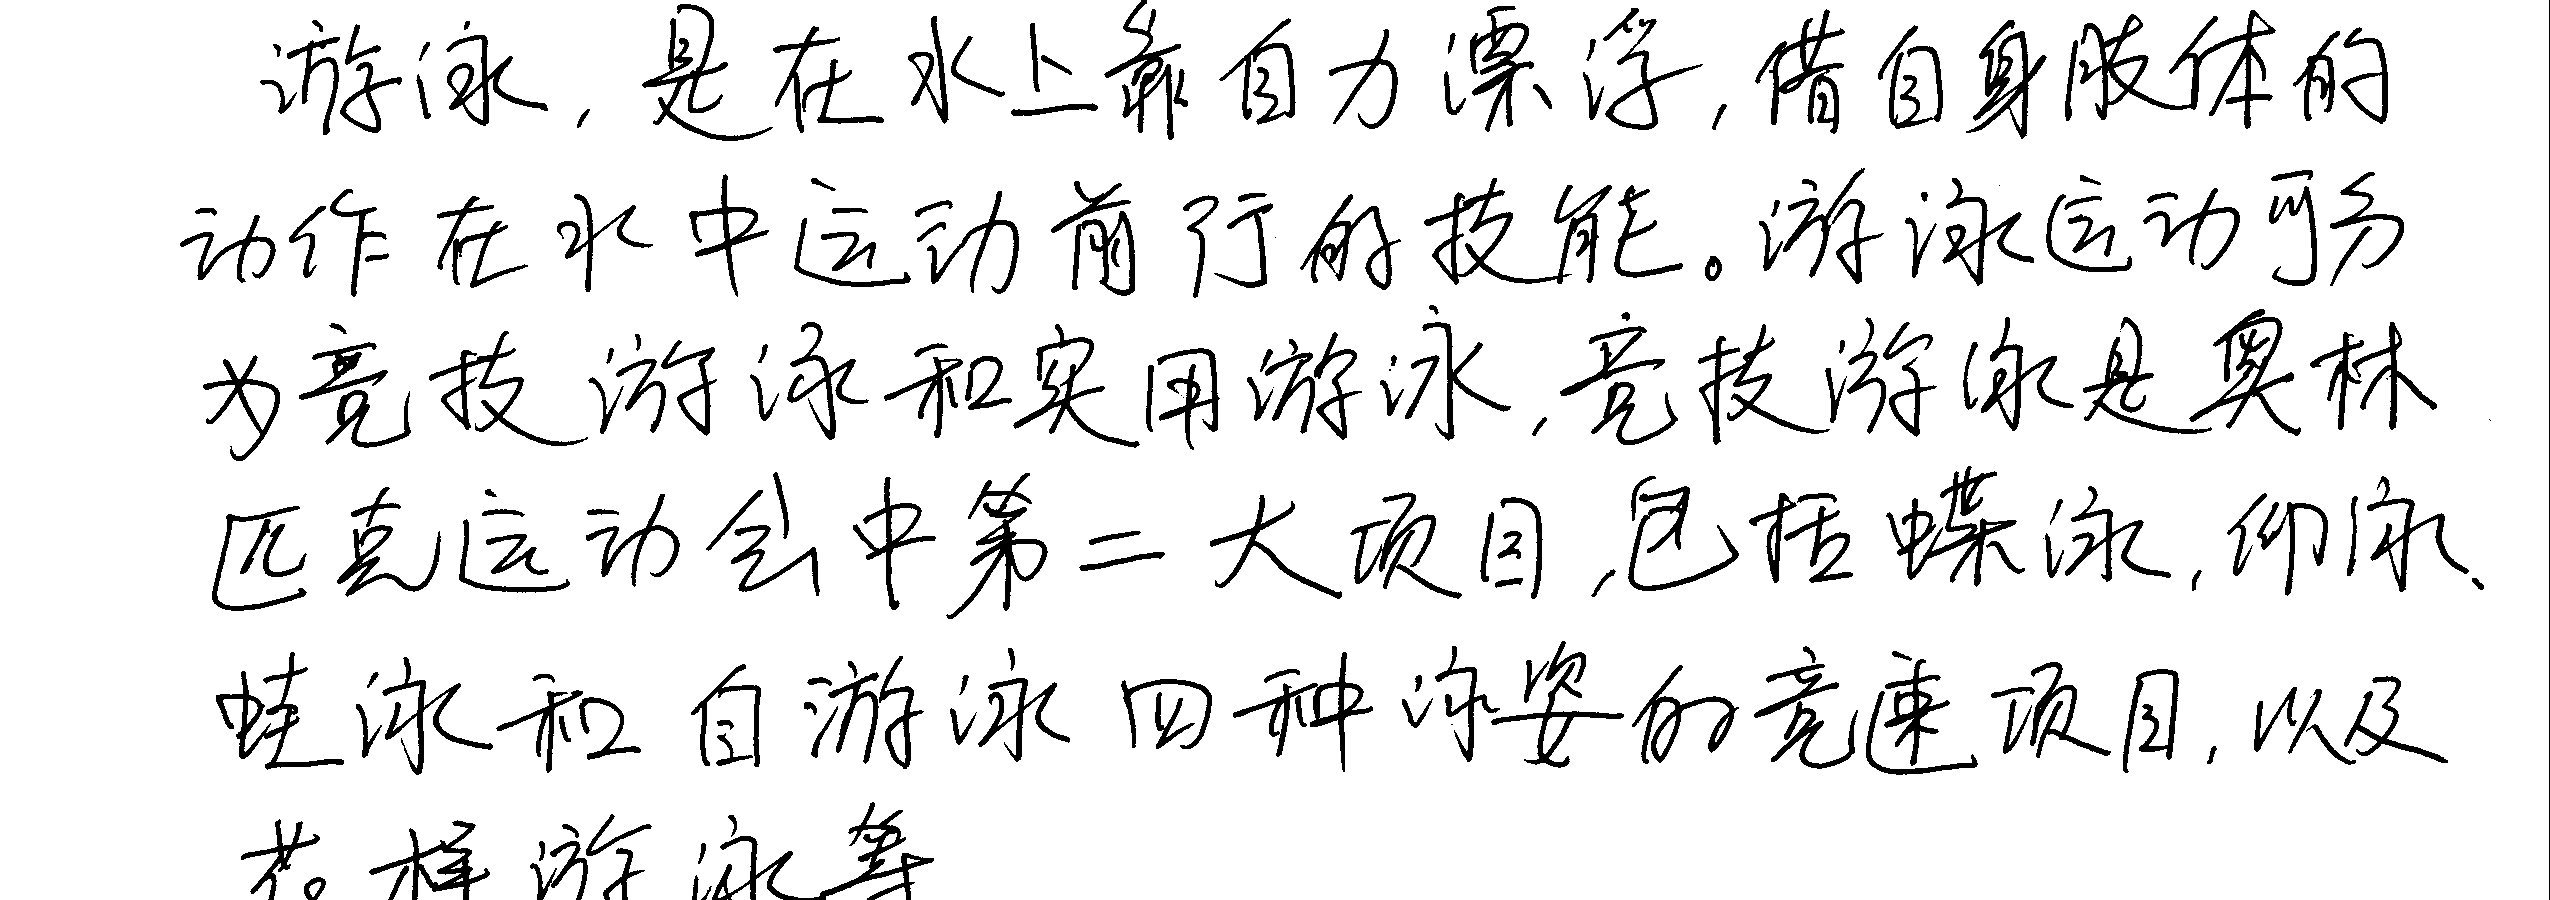 游泳，是在水上靠自力漂浮，借自身肢体的
动作在水中运动前行的技能。游泳运动可分
为竞技游泳和实用游泳，竞技游泳是奥林
匹克运动会中第二大项目，包括蝶泳，仰泳、
蛙泳和自游泳四种泳姿的竞速项目，以及
花样游泳等